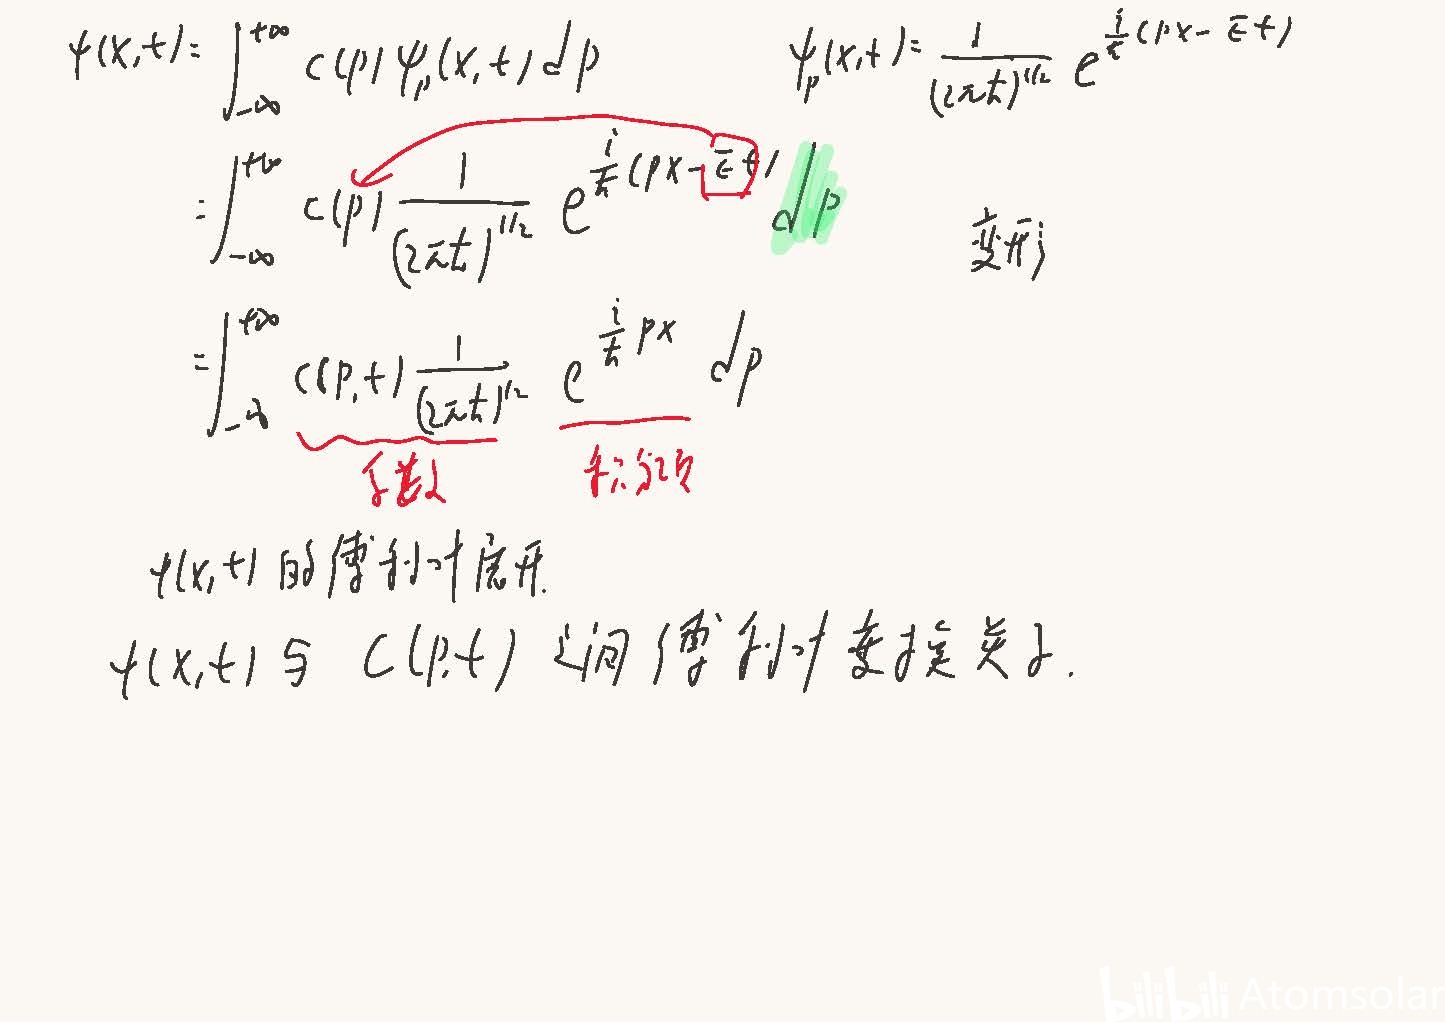 ψ(x,t)=∫_{-∞}^{+∞} c(p) ψ_p(x,t) dp    ψ_p(x,t)= \frac{1}{(2πħ)^{1/2}} e^{\frac{i}{ħ}(px-Et)}
=∫_{-∞}^{+∞} c(p) \frac{1}{(2πħ)^{1/2}} e^{\frac{i}{ħ}(px-Et)} dp    变形
=∫_{-∞}^{+∞} c(p,t) \frac{1}{(2πħ)^{1/2}} e^{\frac{i}{ħ}px} dp
系数 积分项
ψ(x,t) 的傅利叶展开.
ψ(x,t) 与 C(p,t) 之间傅利叶变换关系.
bilibili Atomsolar